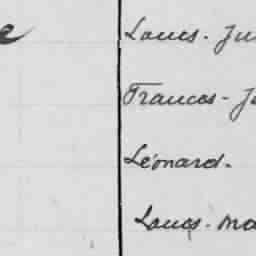 e Louis - Ju
Francois - J
Léonard -
Louis - ma